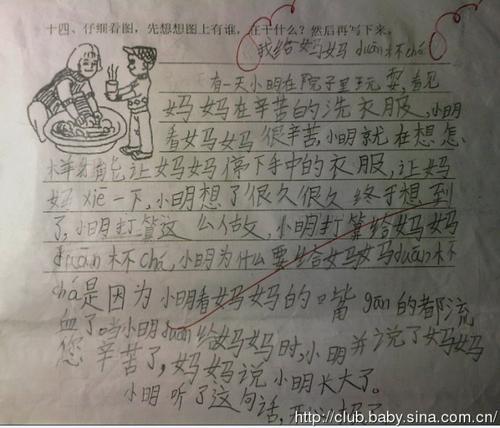 十四、仔细看图，先想想图上有谁，在干什么？然后再写下来。
我给妈妈duān杯chá
有一天小明在院子里玩耍，看见
妈妈在辛苦的洗衣服，小明
看女马女马很辛苦，小明就在想怎
样才能让妈妈停下手中的衣服，让妈
妈xiē一下，小明想了很久很久终于想到
了，小明打算这么做，小明打算给妈妈
duān杯chá，小明为什么要给妈妈duān杯
chá是因为小明看妈妈的口皆gān的都流
血了，小明duān给妈妈时，小明并说了妈妈
您辛苦了，妈妈说小明长大了。
小明听了这句话，开心
http://club.baby.sina.com.cn